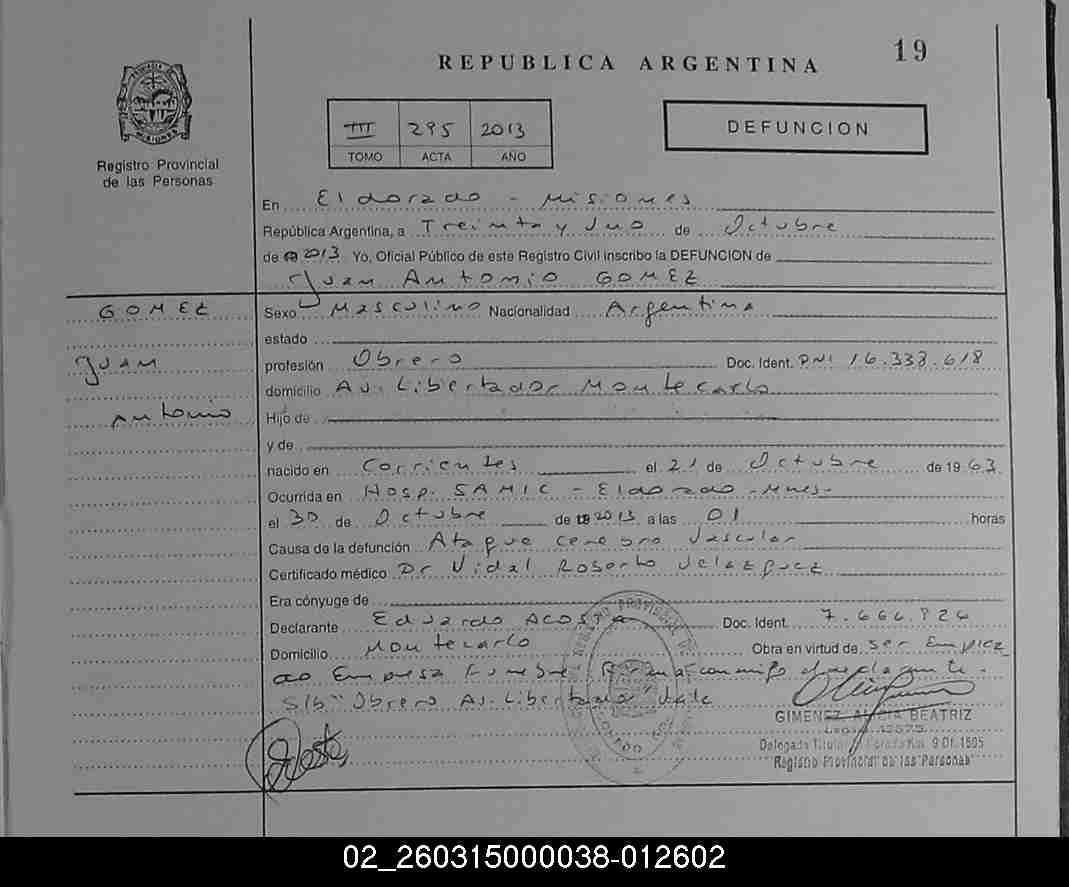 19
REPUBLICA ARGENTINA
III 295 2013
TOMO ACTA AÑO
DEFUNCION
PROVINCIA
MISIONES
Registro Provincial
de las Personas
En Eldorado - Misiones
República Argentina, a Treinta y Uno de Octubre
de 2013 Yo, Oficial Público de este Registro Civil inscribo la DEFUNCION de
Juan Antonio GOMEZ
GOMEZ
Juan
Antonio
Sexo Masculino Nacionalidad Argentina
estado
profesión Obrero Doc. Ident. DNI 16.338.618
domicilio Av. Libertador Montecarlo
Hijo de
y de
nacido en Corrientes el 21 de Octubre de 1963
Ocurrida en Hosp. SAMIC - Eldorado - Mnes-
el 30 de Octubre de 2013 a las 01 horas
Causa de la defunción Ataque cerebro Vascular
Certificado médico Dr Vidal Roberto Velazquez
Era cónyuge de
Declarante Eduardo ACOSTA Doc. Ident. 7.664.824
Domicilio Montecarlo Obra en virtud de ser Emplea
do Empresa Funebre firma conmigo el declarante.
S/b "Obrero Av. Libertador" Vale
GIMENEZ ALICIA BEATRIZ
Delegada Titular Eldorado Km. 9 Of. 1505
Registro Provincial de las Personas
02_260315000038-012602